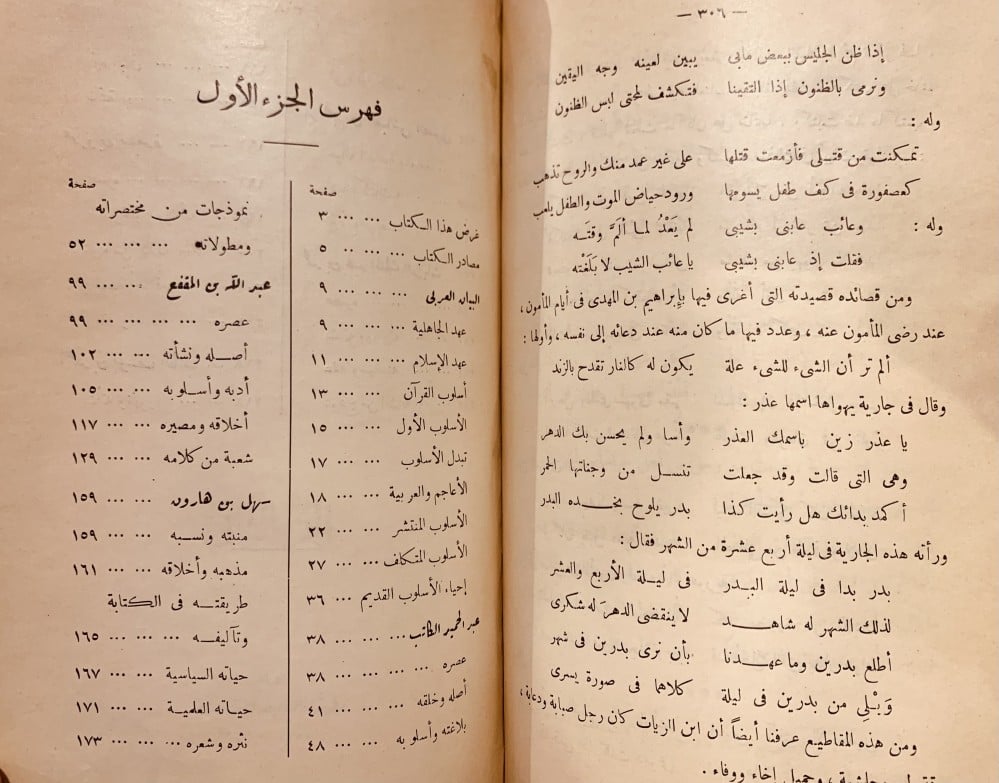 — ٣٠٦ —
إذا ظن الجليس ببعض مابى يبين لعينه وجه اليقين
ونرمى بالظنون إذا التقينا فتكشف لمحتى لبس الظنون
وله :
تمكنت من قتلى فأزمعت قتلها على غير عمد منك والروح تذهب
كعصفورة فى كف طفل يسومها ورود حياض الموت والطفل يلعب
وله : وعائب عابنى بشيبى لم يَعْدُ لما ألمَّ وقتَه
فقلت إذ عابنى بشيبى يا عائب الشيب لا بَلَغْته
ومن قصائده قصيدته التى أغرى فيها بإبراهيم بن المهدى فى أيام المأمون ،
عند رضى المأمون عنه ، وعدد فيها ما كان منه عند دعائه إلى نفسه ، وأولها :
ألم تر أن الشىء للشىء علة يكون له كالنار تقدح بالزند
وقال فى جارية يهواها اسمها عذر :
يا عذر زين باسمك العذر وأسا ولم يحسن بك الدهر
وهى التى قالت وقد جعلت تنسل من وجناتها الخمر
أكمد بدائك هل رأيت كذا بدر يلوح بخده البدر
ورأته هذه الجارية فى ليلة أربع عشرة من الشهر فقال :
بدر بدا فى ليلة البدر فى ليلة الأربع والعشر
لذلك الشهر له شاهد لا ينقضى الدهرَ له شكرى
أطلع بدرين وما عهدنا بأن نرى بدرين فى شهر
وَيْلى من بدرين فى ليلة كلاهما فى صورة يسرى
ومن هذه المقاطيع عرفنا أيضاً أن ابن الزيات كان رجل صبابة ودعابة ،
إخاء ووفاء .
فهرس الجزء الأول
صفحة
غرض هذا الكتاب ... ... ٣
مصادر الكتاب ... .. ٥
البيان العربى ... ... ... ٩
عهد الجاهلية ... ... ٩
عهد الإسلام ... ... ١١
أسلوب القرآن ... ... ١٣
الأسلوب الأول ... ... ١٥
تبدل الأسلوب ... ... ١٧
الأعاجم والعربية ... ... ١٨
الأسلوب المنتشر ... ... ٢٢
الأسلوب المتكلف ... ... ٢٧
إحياء الأسلوب القديم ... ... ٣٦
عبد الحميد الكاتب ... ... ... ٣٨
عصره ... ... ... ٣٨
أصله وخلقه ... ... ٤١
بلاغته وأسلوبه ... ... ٤٨
صفحة
نموذجات من مختصراته
ومطولاته ... ... ... ٥٢
عبد الله بن المقفع ... ... ٩٩
عصره ... ... ... ... ٩٩
أصله ونشأته ... ... ١٠٢
أدبه وأسلوبه ... ... ١٠٥
أخلاقه ومصيره ... ... ١١٧
شعبة من كلامه ... ... ١٢٩
سهل بن هارون ... ... ... ١٥٩
منبته ونسبه ... ... ١٥٩
مذهبه وأخلاقه ... ... ١٦١
طريقته فى الكتابة
وتآليفه ... ... ... ١٦٥
حياته السياسية ... ... ١٦٧
حياته العلمية ... ... ١٧١
نثره وشعره ... ... ... ١٧٣